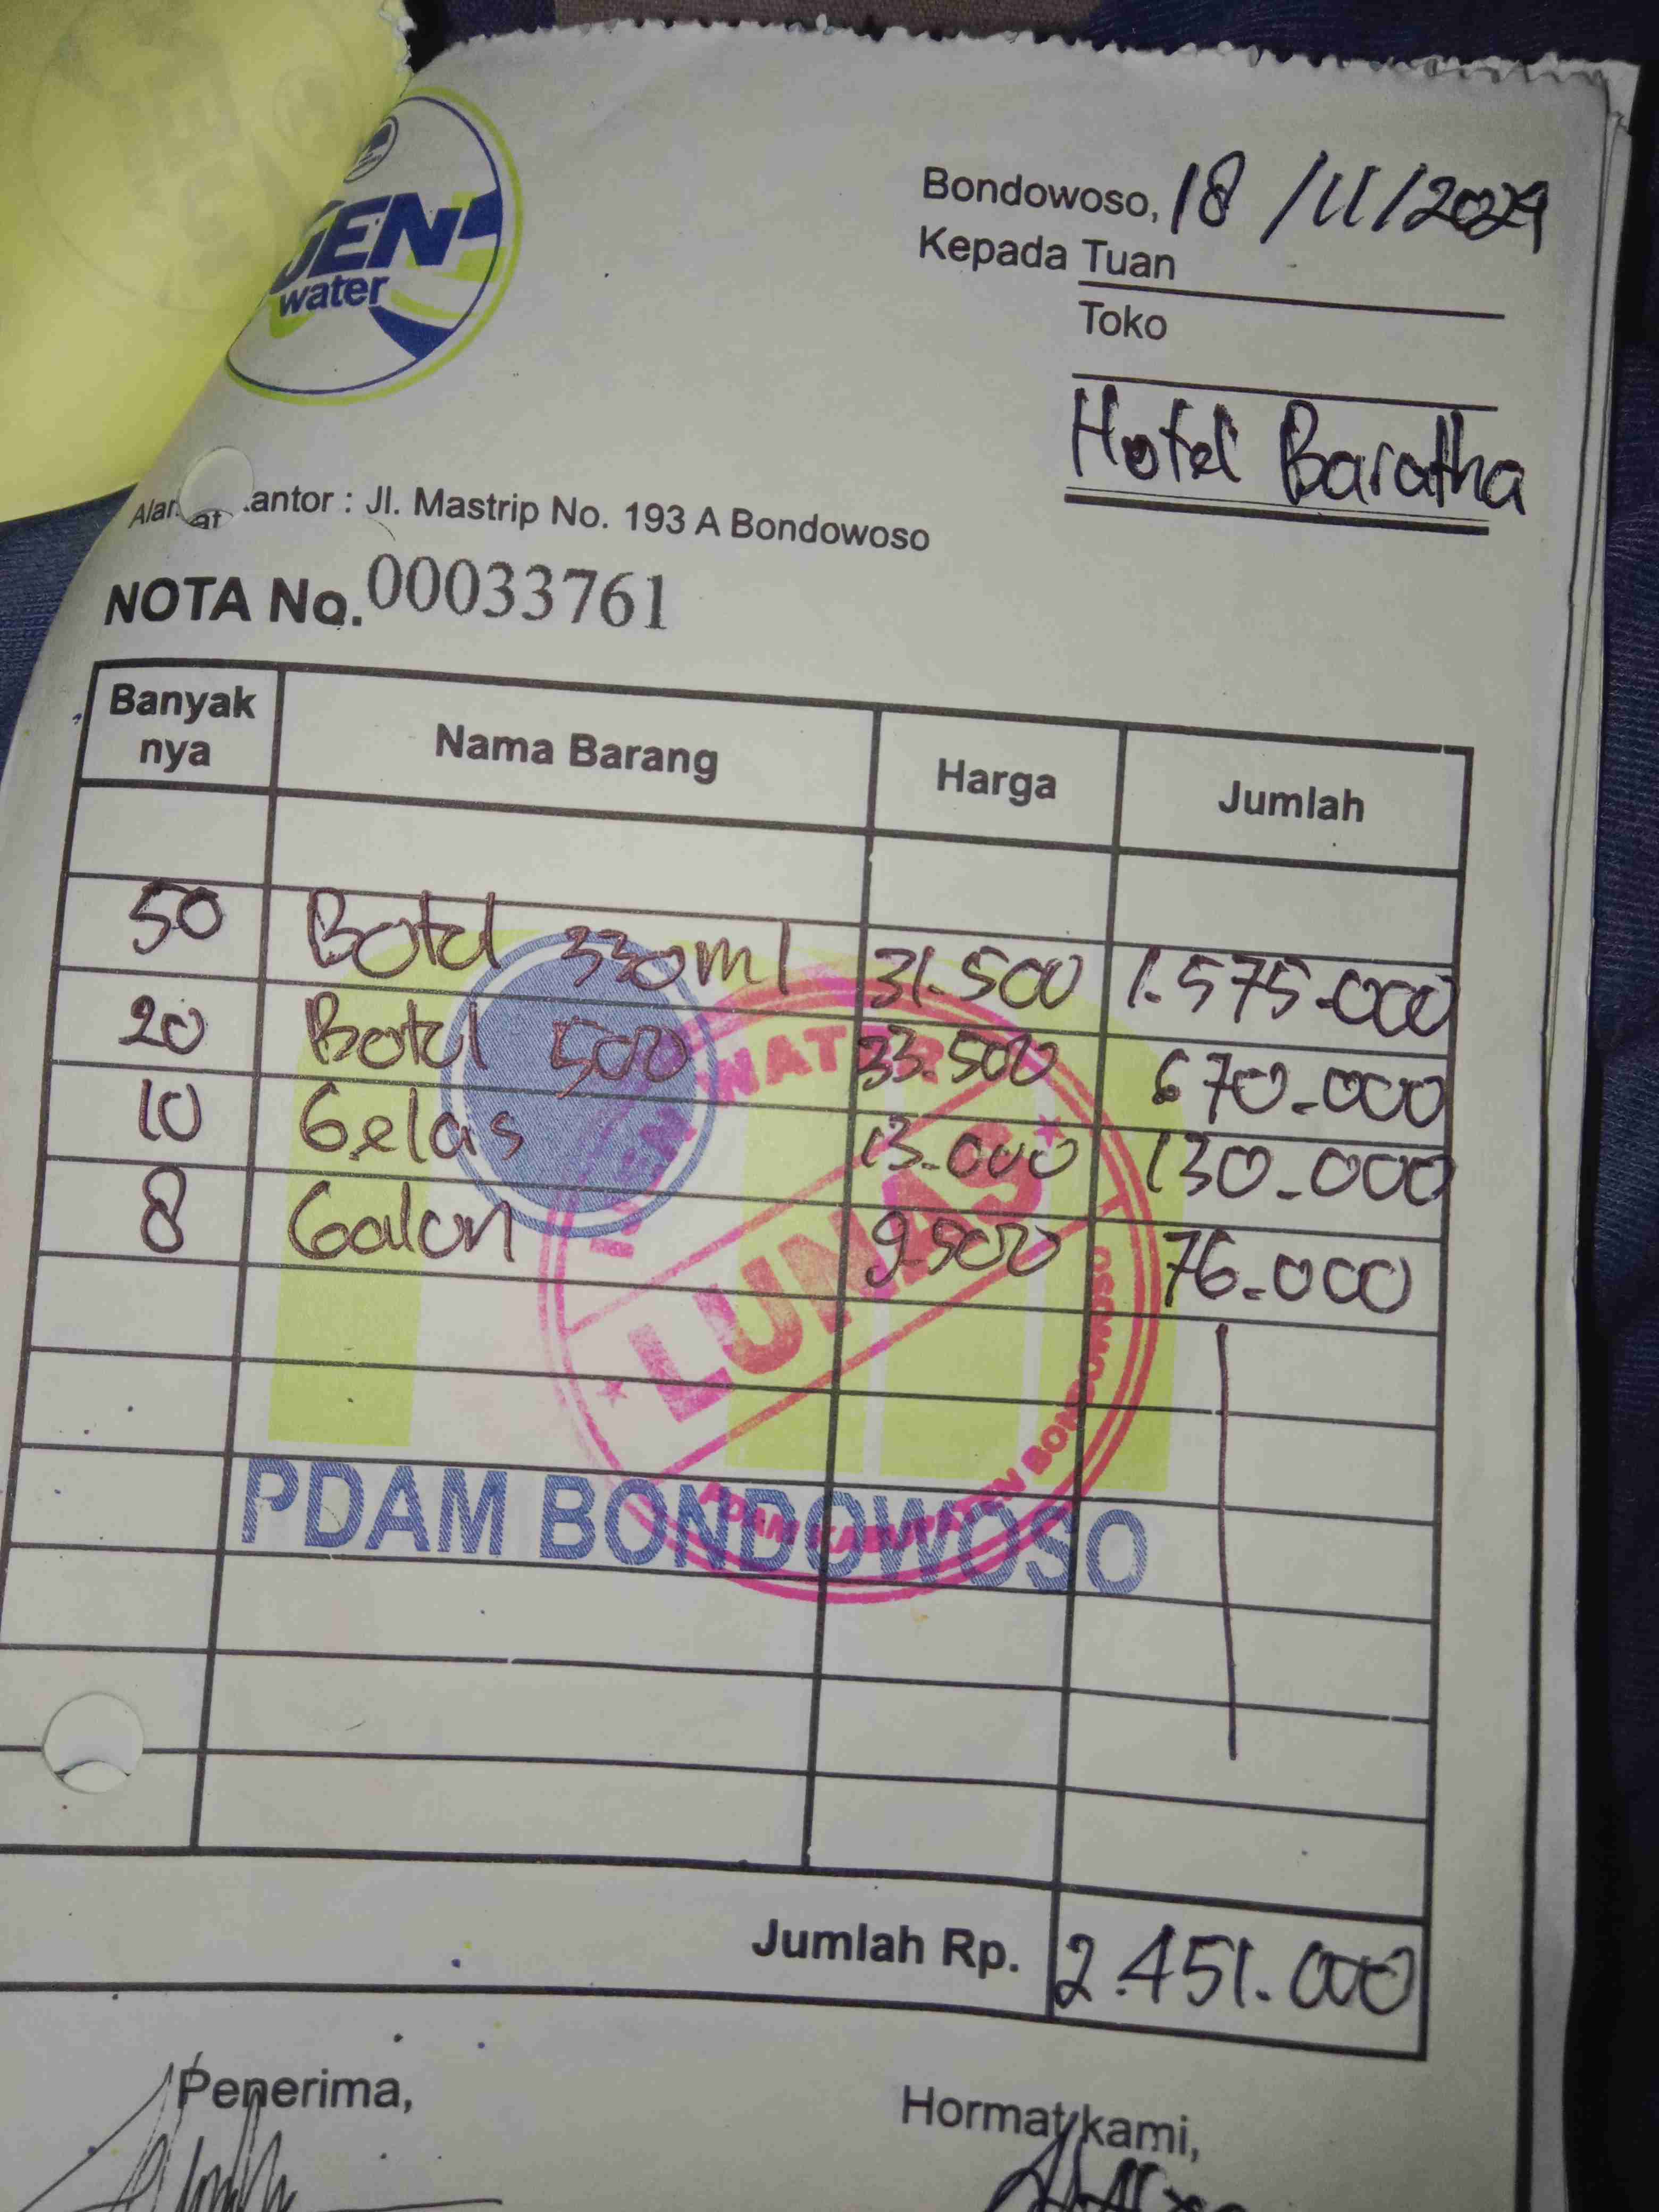 Bondowoso, 18/11/2024
Kepada Tuan
Toko
Hotel Baratha
GEN
water
Kantor : Jl. Mastrip No. 193 A Bondowoso
NOTA No. 00033761
Banyak nya Nama Barang Harga Jumlah
50 Botol 330 ml 31.500 1.575.000
20 Botol 500 33.500 670.000
10 Gelas 13.000 130.000
8 Galon 9.500 76.000
WATER
LUNAS
PDAM KABUPATEN BONDOWOSO
PDAM BONDOWOSO
Jumlah Rp. 2.451.000
Penerima,
Hormat kami,